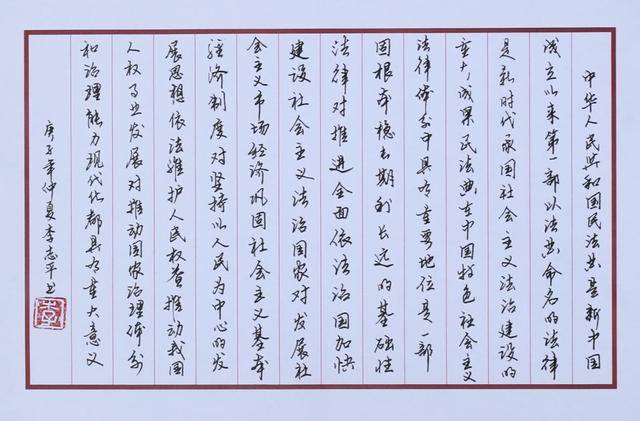 中华人民共和国民法典是新中国
成立以来第一部以法典命名的法律
是新时代我国社会主义法治建设的
重大成果民法典在中国特色社会主义
法律体系中具有重要地位是一部
固根本稳预期利长远的基础性
法律对推进全面依法治国加快
建设社会主义法治国家对发展社
会主义市场经济巩固社会主义基本
经济制度对坚持以人民为中心的发
展思想依法维护人民权益推动我国
人权事业发展对推动国家治理体系
和治理能力现代化都具有重大意义
庚子年仲夏李志平书